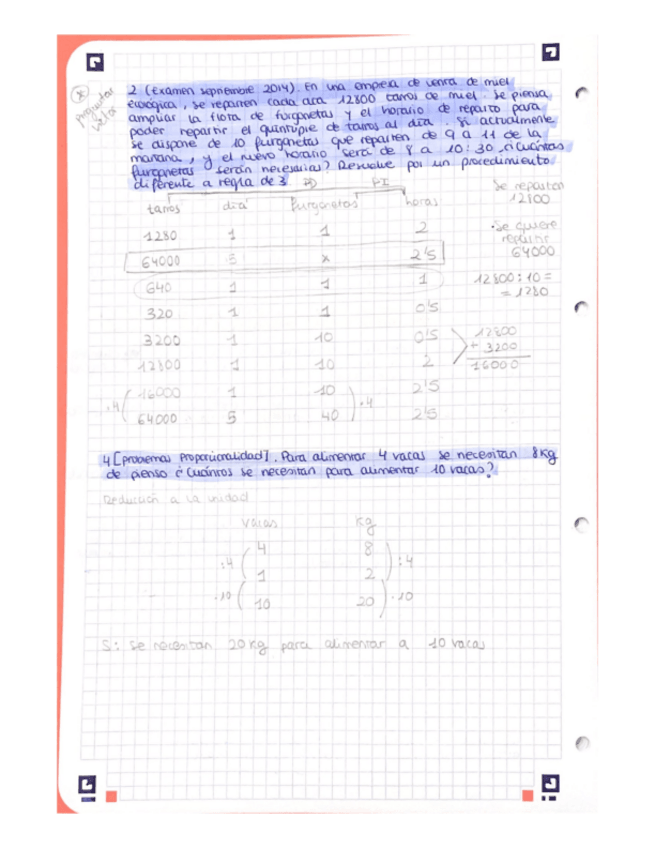 * preguntar
2 (Examen septiembre 2014). En una empresa de venta de miel
ecológica, se reparten cada día 12800 tarros de miel. Se piensa
ampliar la flota de furgonetas y el horario de reparto para
poder repartir el quíntuple de tarros al día. Si actualmente
se dispone de 10 furgonetas que reparten de 9 a 11 de la
mañana, y el nuevo horario será de 8 a 10:30 ¿Cuántas
furgonetas serán necesarias? Resuelve por un procedimiento
diferente a regla de 3.
PI
Se reparten
12800
tarros día furgonetas horas
1280 1 1 2
64000 5 x 2'5
·Se quiere
repartir
64000
640 1 1 1
12800:10=
=1280
320 1 1 0'5
3200 1 10 0'5
12800 1 10 2
12800
+ 3200
16000
16000 1 10 2'5
·4 ·4
64000 5 40 2'5
4 [problemas proporcionalidad]. Para alimentar 4 vacas se necesitan 8kg
de pienso ¿Cuántos se necesitan para alimentar 10 vacas?
Reducción a la unidad
vacas kg
4 8
:4 :4
1 2
·10 ·10
10 20
S: Se necesitan 20 kg para alimentar a 10 vacas